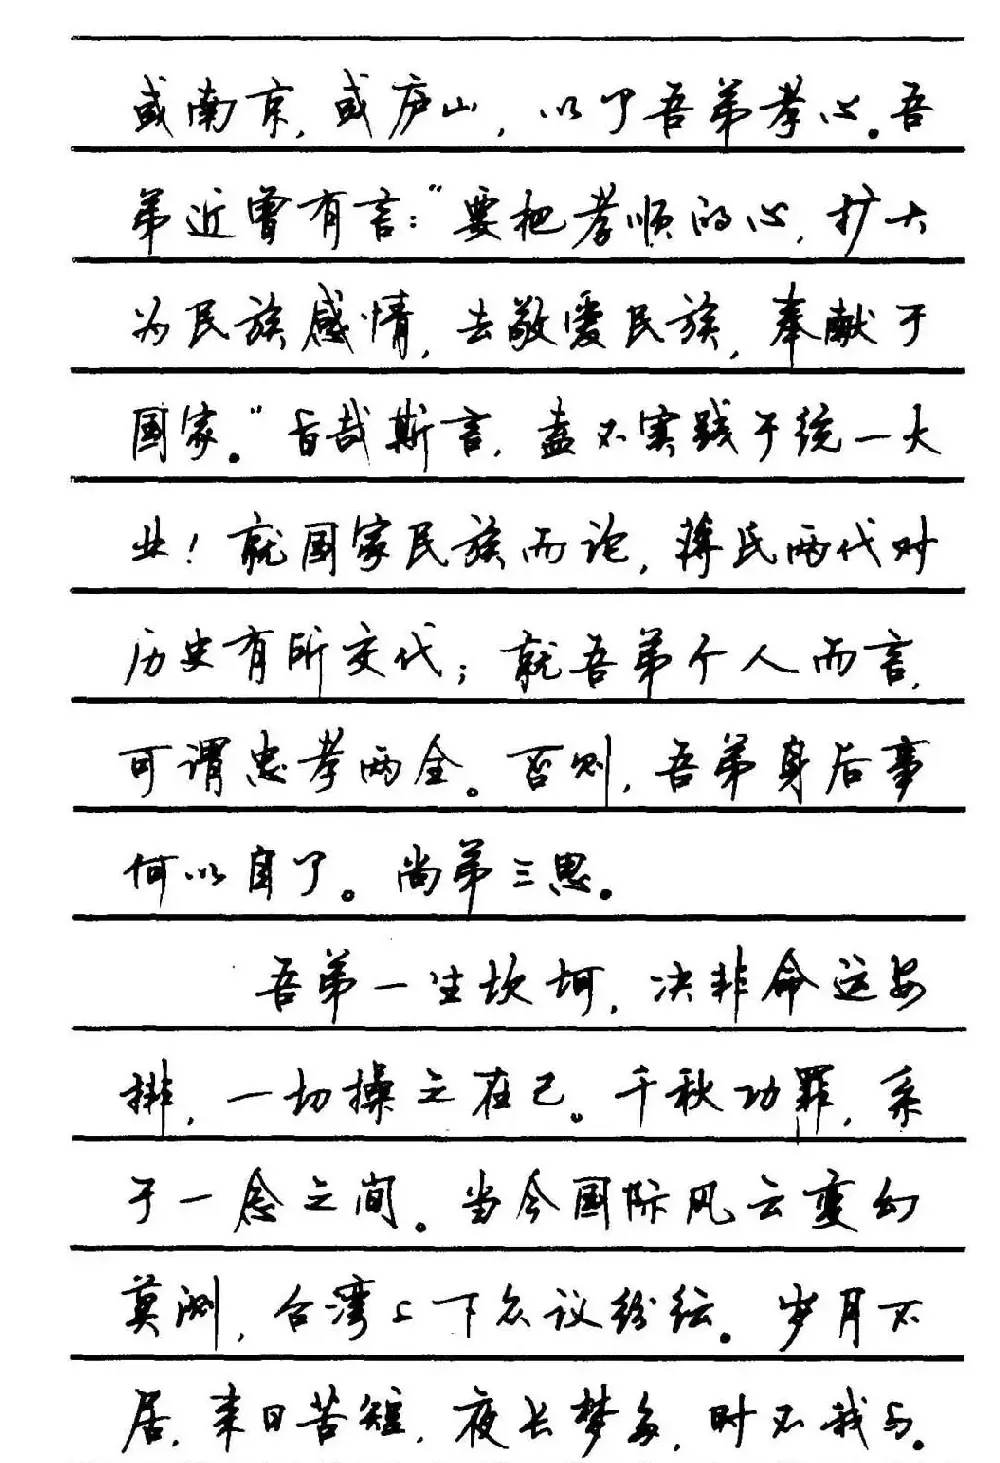 或南京，或庐山，以了吾弟孝心。吾
弟近曾有言：“要把孝顺的心，扩大
为民族感情，去敬爱民族，奉献于
国家。”旨哉斯言，盍不实践于统一大
业！就国家民族而论，蒋氏两代对
历史有所交代；就吾弟个人而言，
可谓忠孝两全。否则，吾弟身后事
何以自了。尚弟三思。
吾弟一生坎坷，决非命运安
排，一切操之在己。千秋功罪，系
于一念之间。当今国际风云变幻
莫测，台湾上下众议纷纭。岁月不
居，来日苦短，夜长梦多，时不我与。